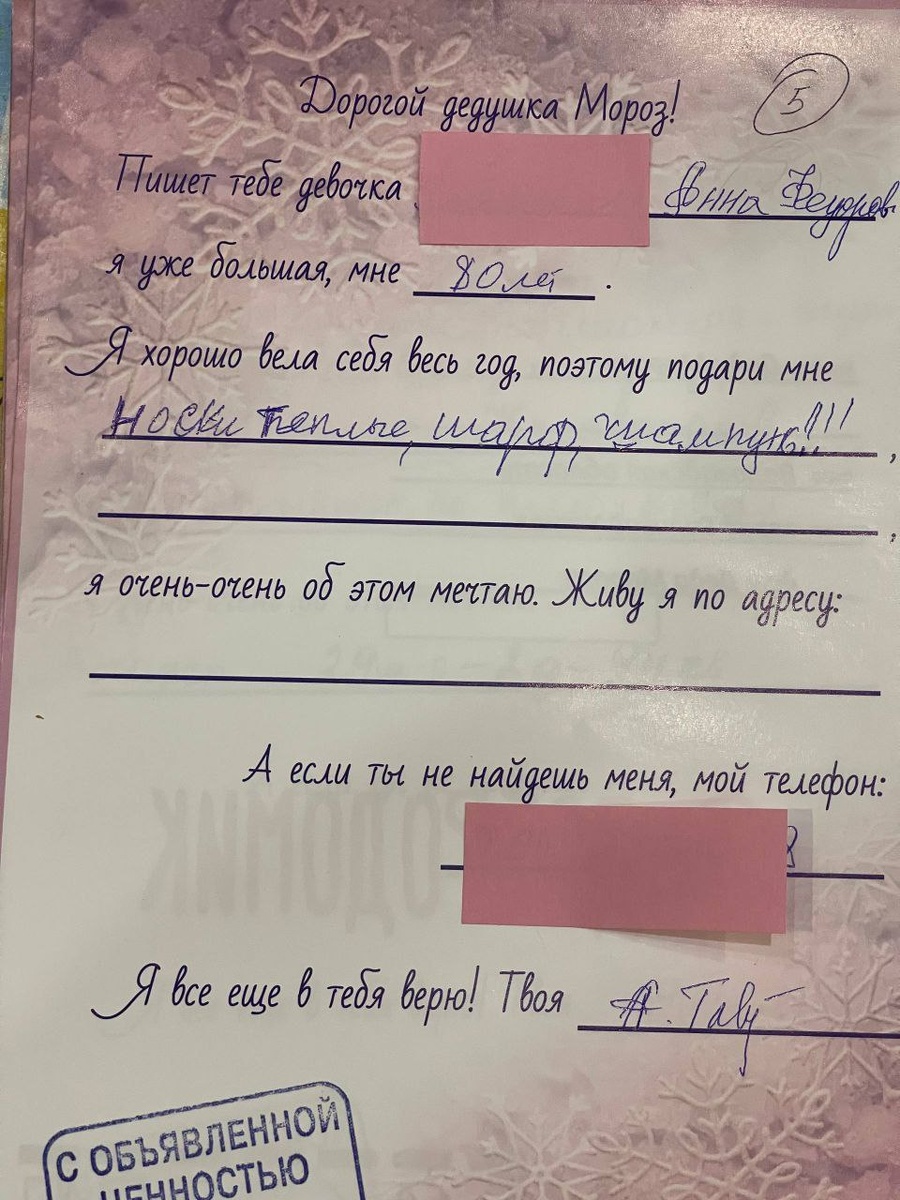 Дорогой дедушка Мороз!
5
Пишет тебе девочка Анна Федоров
я уже большая, мне 80 лет .
Я хорошо вела себя весь год, поэтому подари мне
носки теплые, шарф, шампунь!!!
,
,
я очень-очень об этом мечтаю. Живу я по адресу:
А если ты не найдешь меня, мой телефон:
8
Я все еще в тебя верю! Твоя А.
С ОБЪЯВЛЕННОЙ
ЦЕННОСТЬЮ